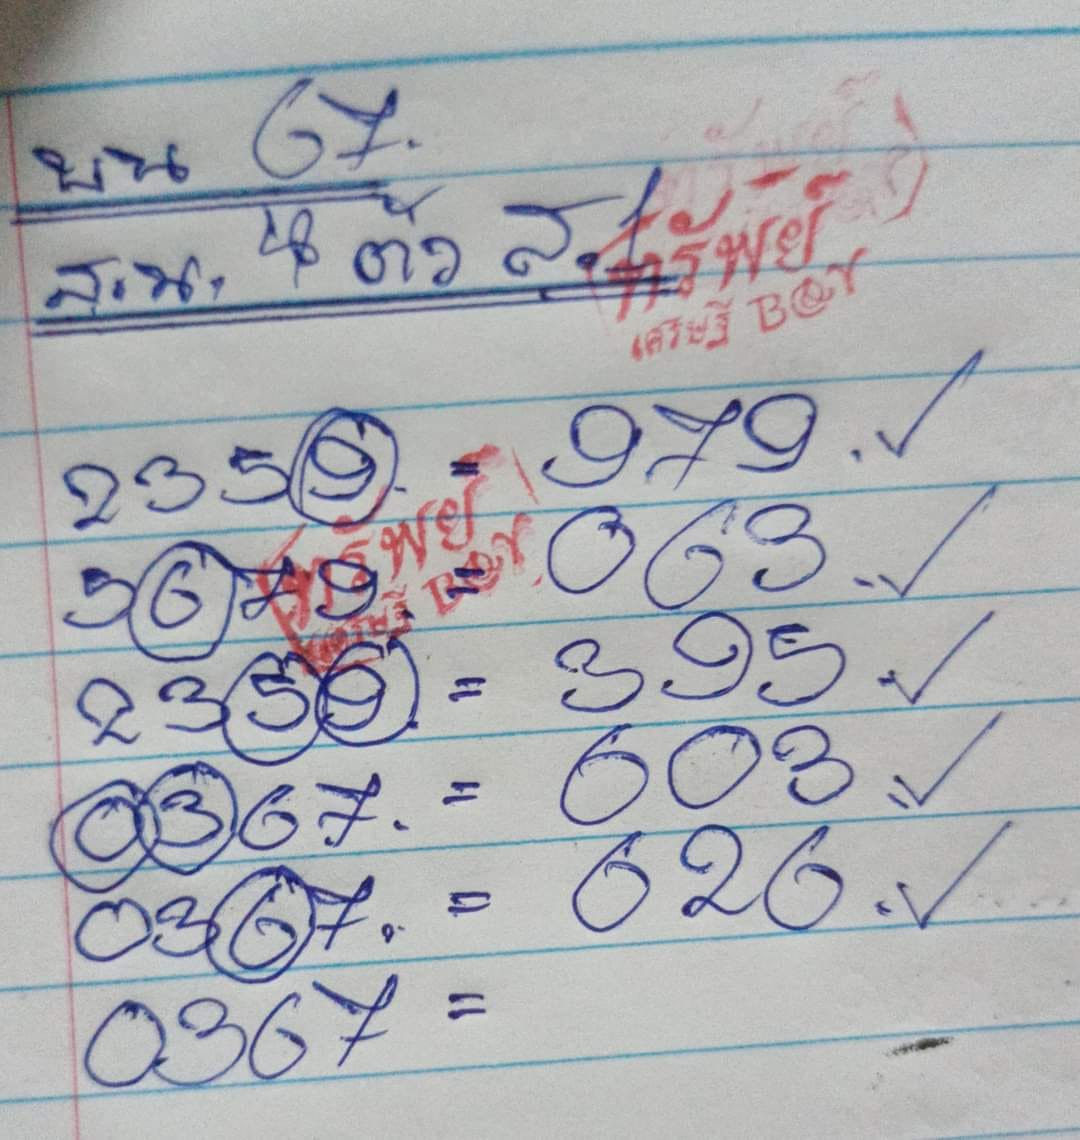 บน 67.
ส.น. 4 ตัว ส.1
ทรัพย์
เศรษฐี B@Y
2359. = 979. ✓
ทรัพย์
เศรษฐี B@Y
3679. = 063. ✓
2359. = 395. ✓
0367. = 603. ✓
0367. = 626. ✓
0367 =